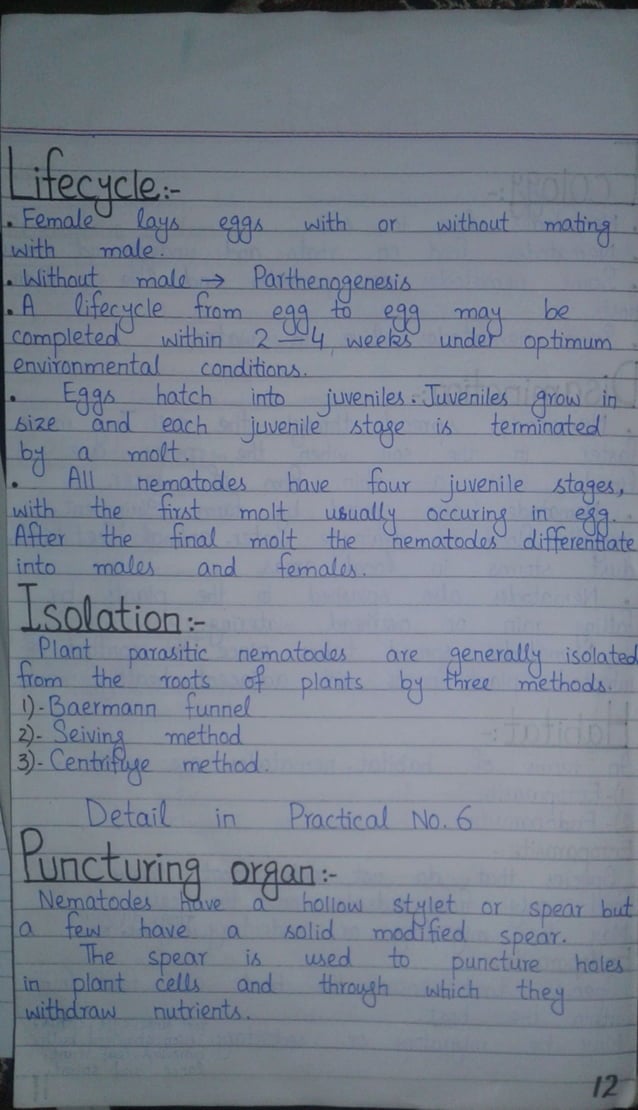 Lifecycle:-
. Female lays eggs with or without mating
with male.
. Without male → Parthenogenesis
. A lifecycle from egg to egg may be
completed within 2-4 weeks under optimum
environmental conditions.
. Eggs hatch into juveniles. Juveniles grow in
size and each juvenile stage is terminated
by a molt.
. All nematodes have four juvenile stages,
with the first molt usually occuring in egg.
After the final molt the nematodes differentiate
into males and females.
Isolation:-
Plant parasitic nematodes are generally isolated
from the roots of plants by three methods.
1)- Baermann funnel
2)- Seiving method
3)- Centrifuge method.
Detail in Practical No. 6
Puncturing organ:-
Nematodes have a hollow stylet or spear but
a few have a solid modified spear.
The spear is used to puncture holes
in plant cells and through which they
withdraw nutrients.
12